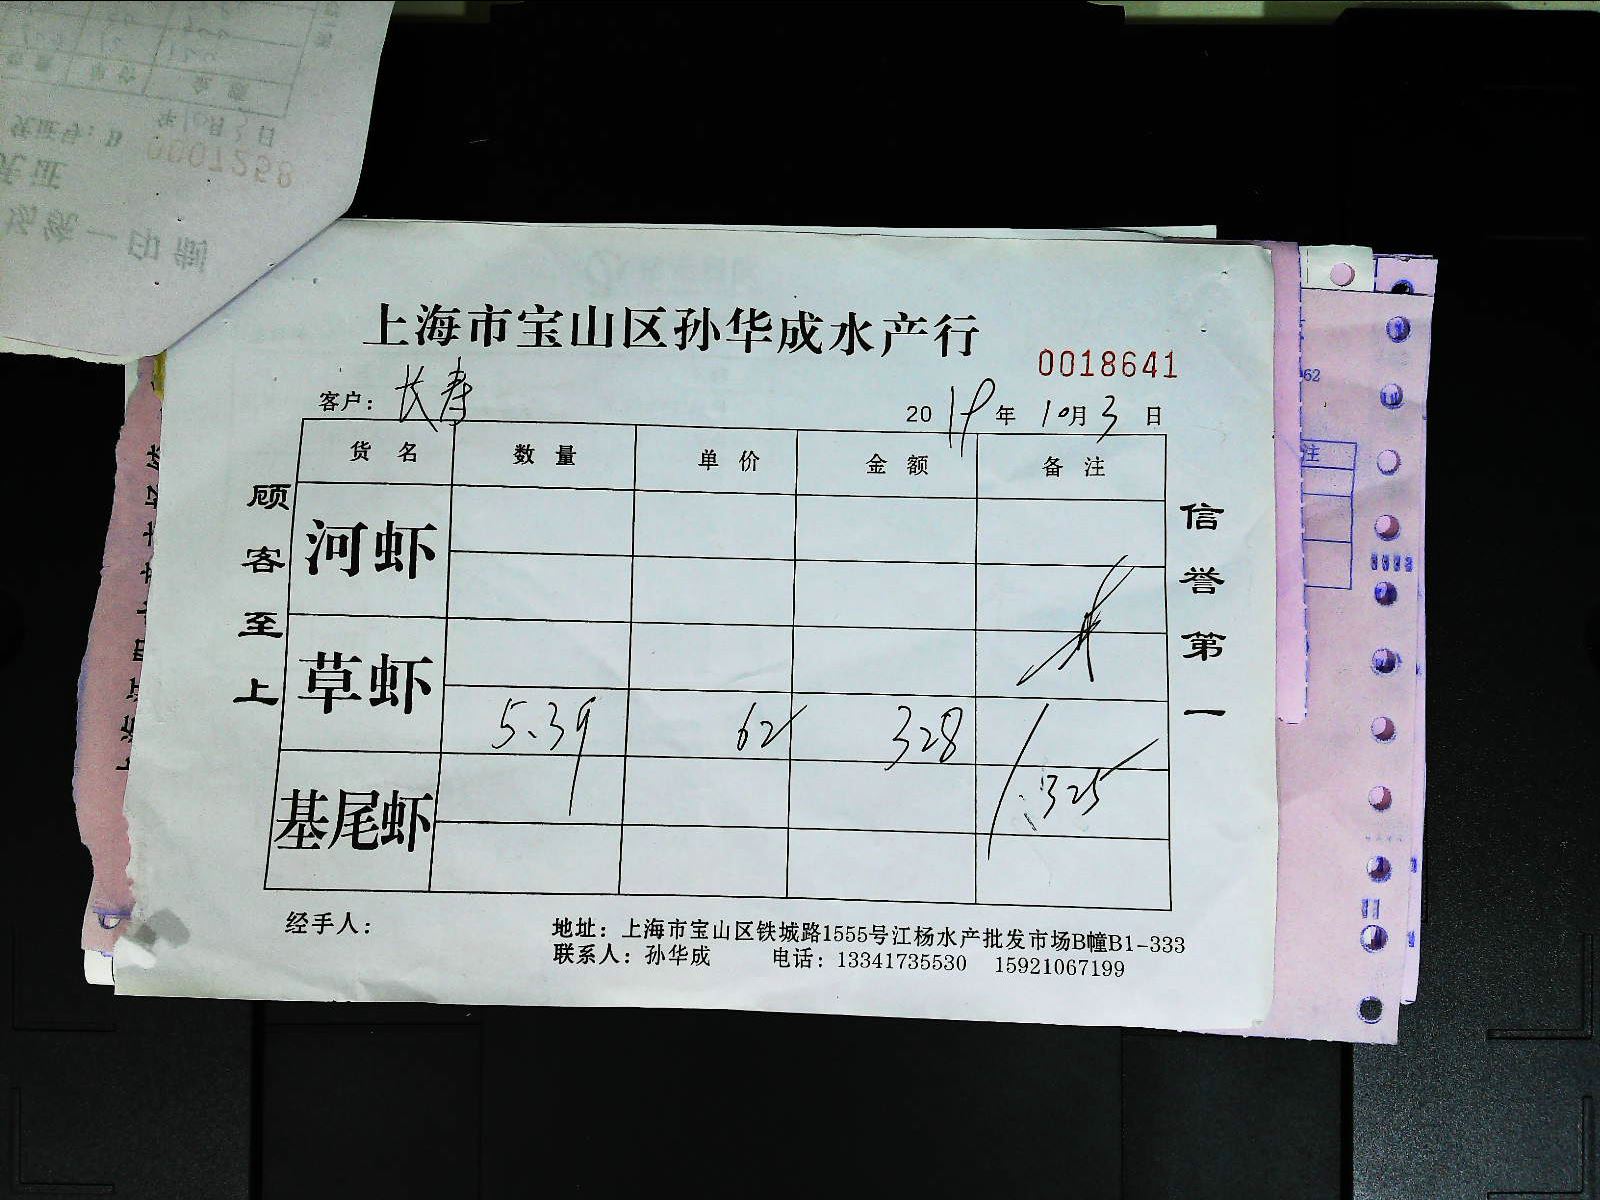 上海市宝山区孙华成水产行
0018641
客户：长寿
2019年10月3日
货名 数量 单价 金额 备注
河虾
草虾
5.39 62 328
325
基尾虾
顾客至上
信誉第一
经手人：
地址：上海市宝山区铁城路1555号江杨水产批发市场B幢B1-333
联系人：孙华成 电话：13341735530 15921067199
0007258
62
注